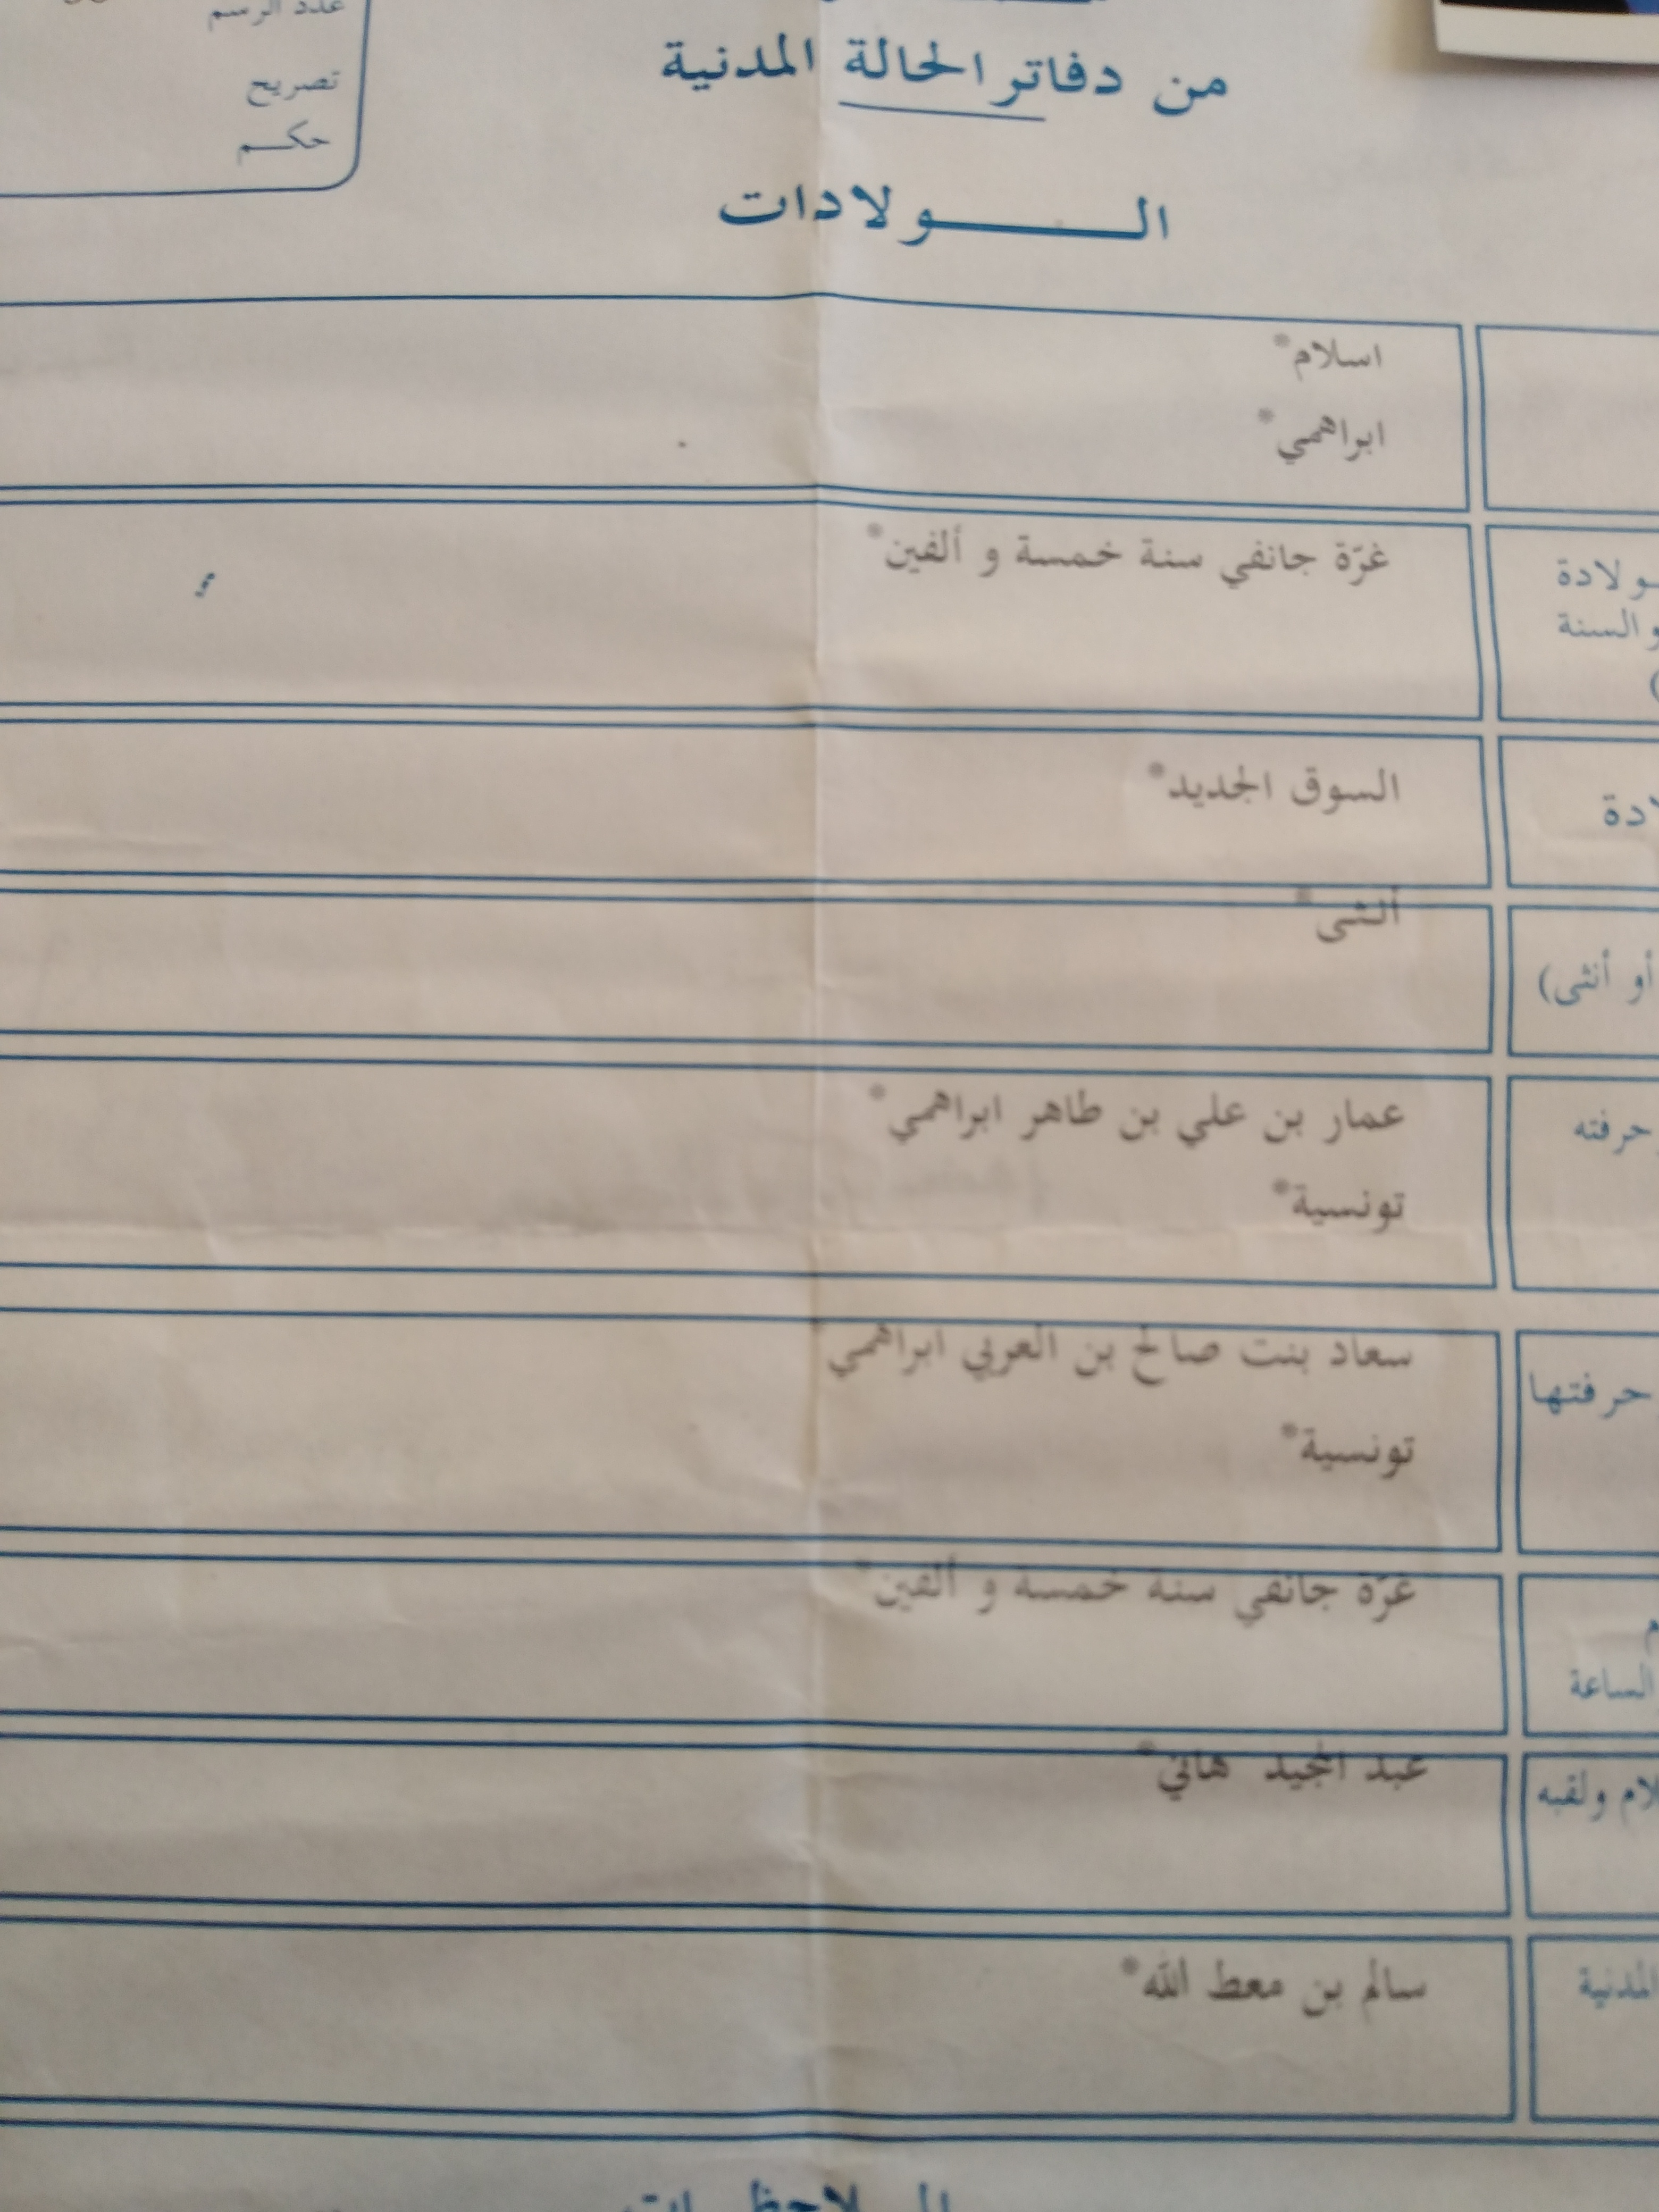 عدد الرسم
تصريح
حكم
من دفاتر الحالة المدنية
الولادات
اسلام*
ابراهمي*
غرّة جانفي سنة خمسة و ألفين*
والسنة
السوق الجديد*
أنثى*
أو أنثى)
عمار بن علي بن طاهر ابراهمي*
حرفته
تونسية*
سعاد بنت صالح بن العربي ابراهمي*
حرفتها
تونسية*
غرّة جانفي سنة خمسة و ألفين*
الساعة
عبد المجيد هاني*
ولقبه
سالم بن معط الله*
المدنية